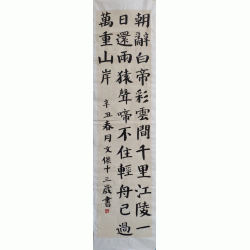 朝辭白帝彩雲間千里江陵一
日還兩猿聲啼不住輕舟已過
萬重山岸
辛丑春月文保十三歲書